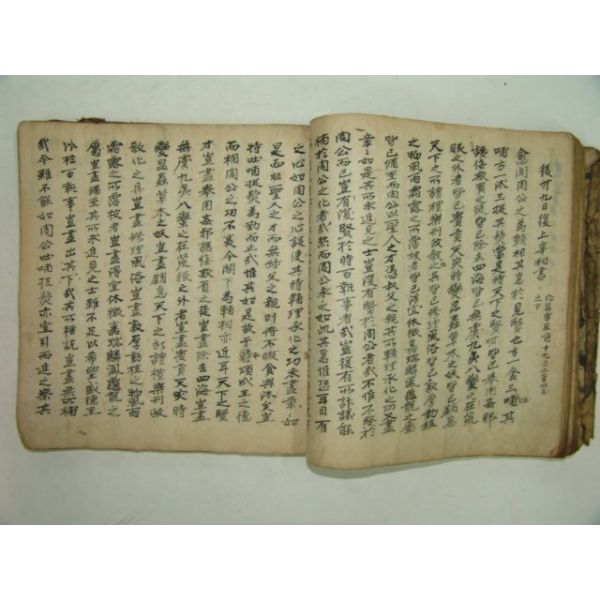 後廿九日復上宰相書
愈聞周公之爲輔相其急於見賢也方一食三哺其
哺方一沐三捉其髮當是時天下之賢才皆已擧用姦邪
讒佞欺負之徒皆已除去四海皆已無虞九夷八蠻之在荒
服之外者皆已賓貢天災時變昆蟲草木之妖皆已銷息
天下之所謂禮樂刑政敎化之具皆已修理風俗皆已敦厚動植
之物風雨霜露之所霑被者皆已得宜休徵嘉瑞麟鳳龜龍之屬
皆已備至而周公以聖人之才憑叔父之親其所輔理承化之功又盡
章〻如是其所求進見之士豈復有賢於周公者哉不惟不賢於
周公而已豈復有賢於時百執事者哉豈復有所計議能
補於周公之化者哉然而周公求之如此其急惟恐耳目有
之心如周公之心設使其時輔理承化之功未盡章〻如
是而非聖人之才而無叔父之親則將不暇食與沐矣豈
特吐哺捉髮爲勤而止哉惟其如是故于今頌成王之德
而稱周公之功不衰今閤下爲輔相亦近耳天下之賢
才豈盡擧用姦邪讒佞欺負之徒豈盡除去四海豈盡
無虞九夷八蠻之在荒服之外者豈盡賓貢天災時
變昆蟲草木之妖豈盡銷息天下之所謂禮樂刑政
敎化之具豈盡修理風俗豈盡敦厚動植之物風雨
霜露之所霑被者豈盡得宜休徵嘉瑞麟鳳龜龍之
屬豈盡備至其所求進見之士雖不足以希望盛德至
於百執事豈盡出其下哉其所稱說豈盡無所補
哉今雖不能如周公吐哺捉髮亦宜引而進之察其